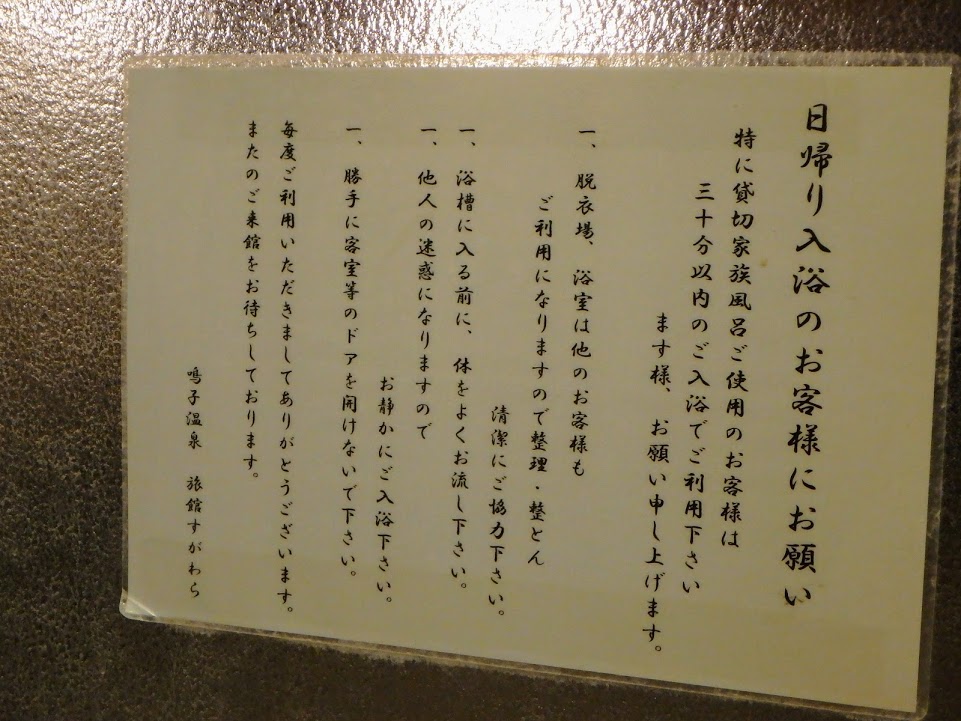 日帰り入浴のお客様にお願い
特に貸切家族風呂ご使用のお客様は
三十分以内のご入浴でご利用下さい
ます様、お願い申し上げます。
一、脱衣場、浴室は他のお客様も
ご利用になりますので整理・整とん
清潔にご協力下さい。
一、浴槽に入る前に、体をよくお流し下さい。
一、他人の迷惑になりますので
お静かにご入浴下さい。
一、勝手に客室等のドアを開けないで下さい。
毎度ご利用いただきましてありがとうございます。
またのご来館をお待ちしております。
鳴子温泉 旅館すがわら